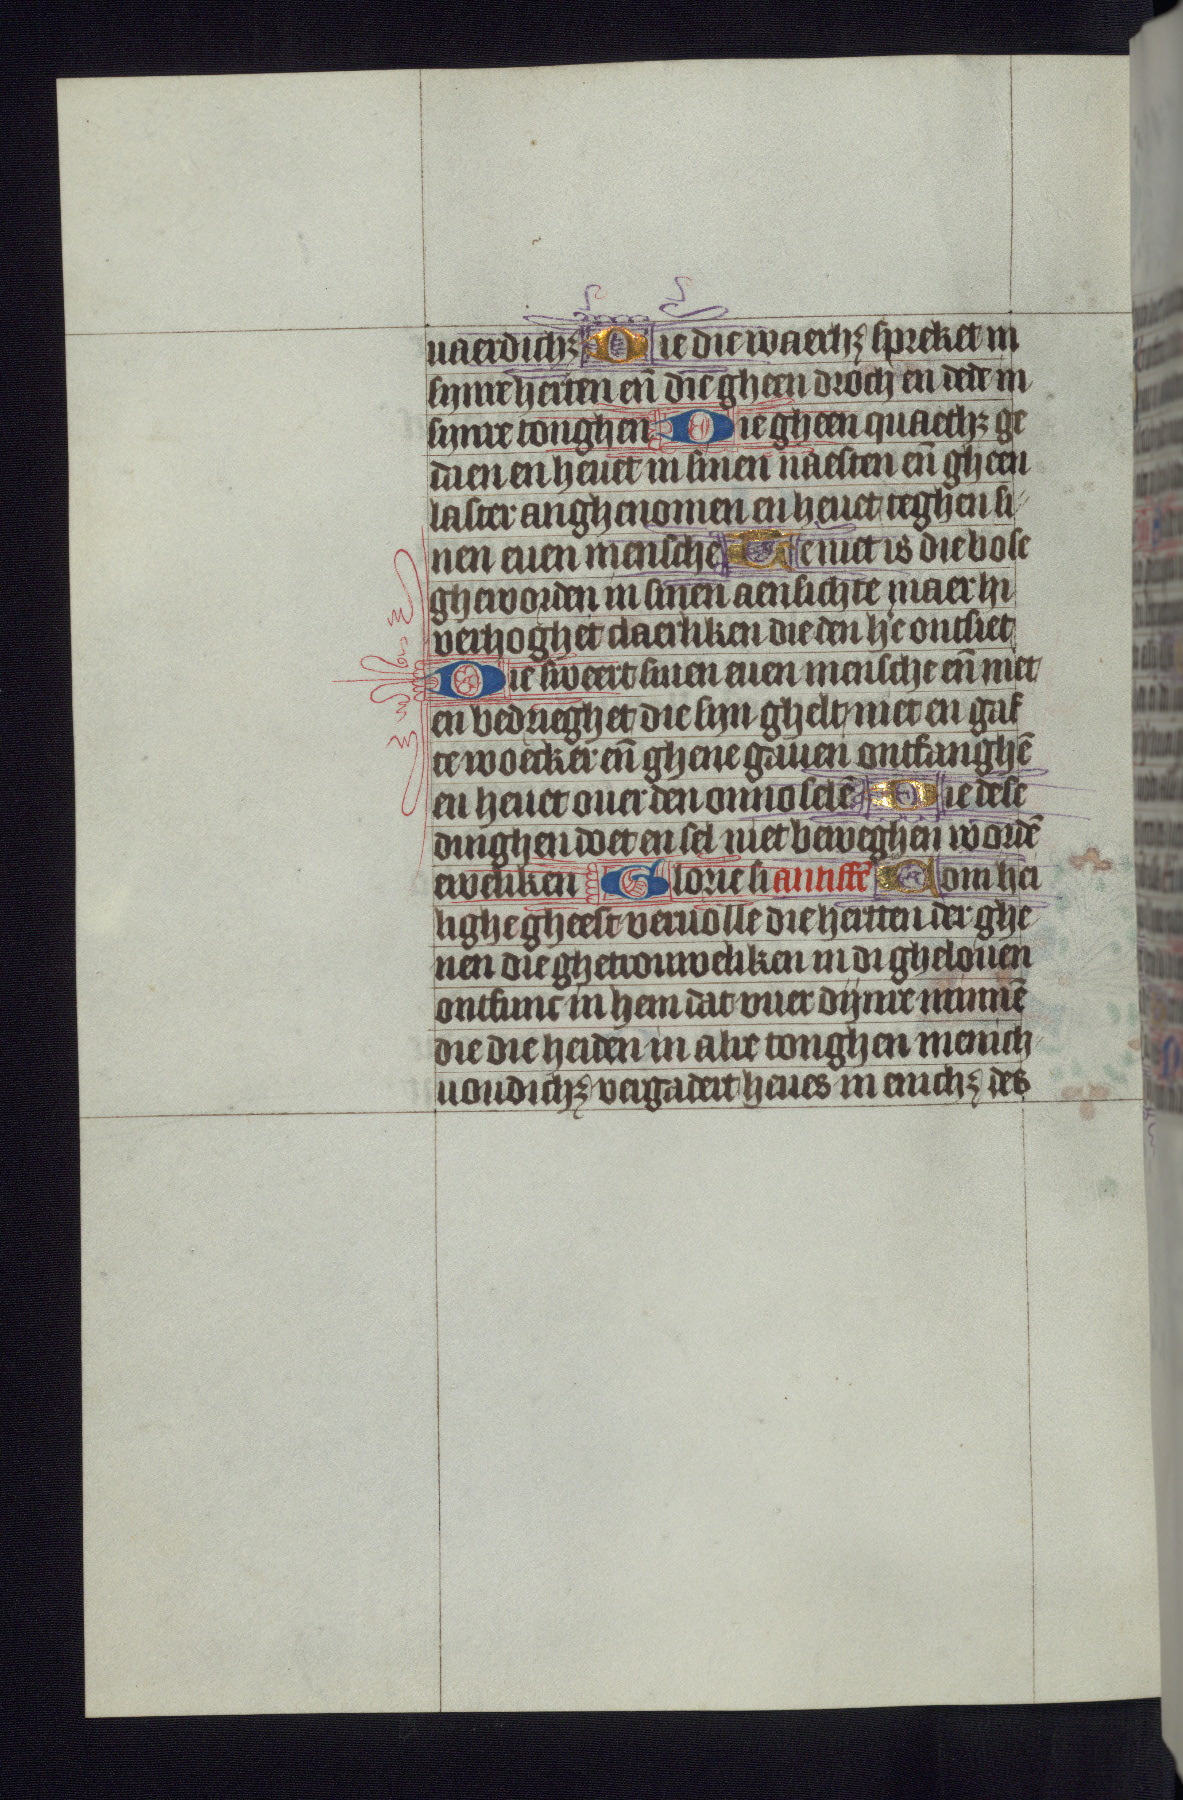 uaerdichꝫ Die die waerhꝫ spreket in
synre herten en̄ die gheen droch en dede in
synre tonghen Die gheen quaethꝫ ge
daen en heuet in sinen naesten en̄ gheen
laster anghenomen en heuet teghen si
nen euen mensche Te niet is die bose
gheworden in sinen aensichte maer hi
verhoghet claerliken die den he ontsiet
Die sweert sinen euen mensche en̄ niet
en bedrieghet die syn ghelt niet en gaf
te woeker en̄ ghene gauen ontfanghē
en heuet ouer den onnoselē Die dese
dinghen doet en sel niet beweghen wordē
eweliken Glorie si antiffē Com hei
lighe gheest veruolle die hertten der ghe
nen die ghetrouweliken in di ghelouen
ontfunc in hem dat vuer dijnre minnē
die die heiden in alre tonghen menich
uoudichꝫ vergadert heues in enichꝫ des